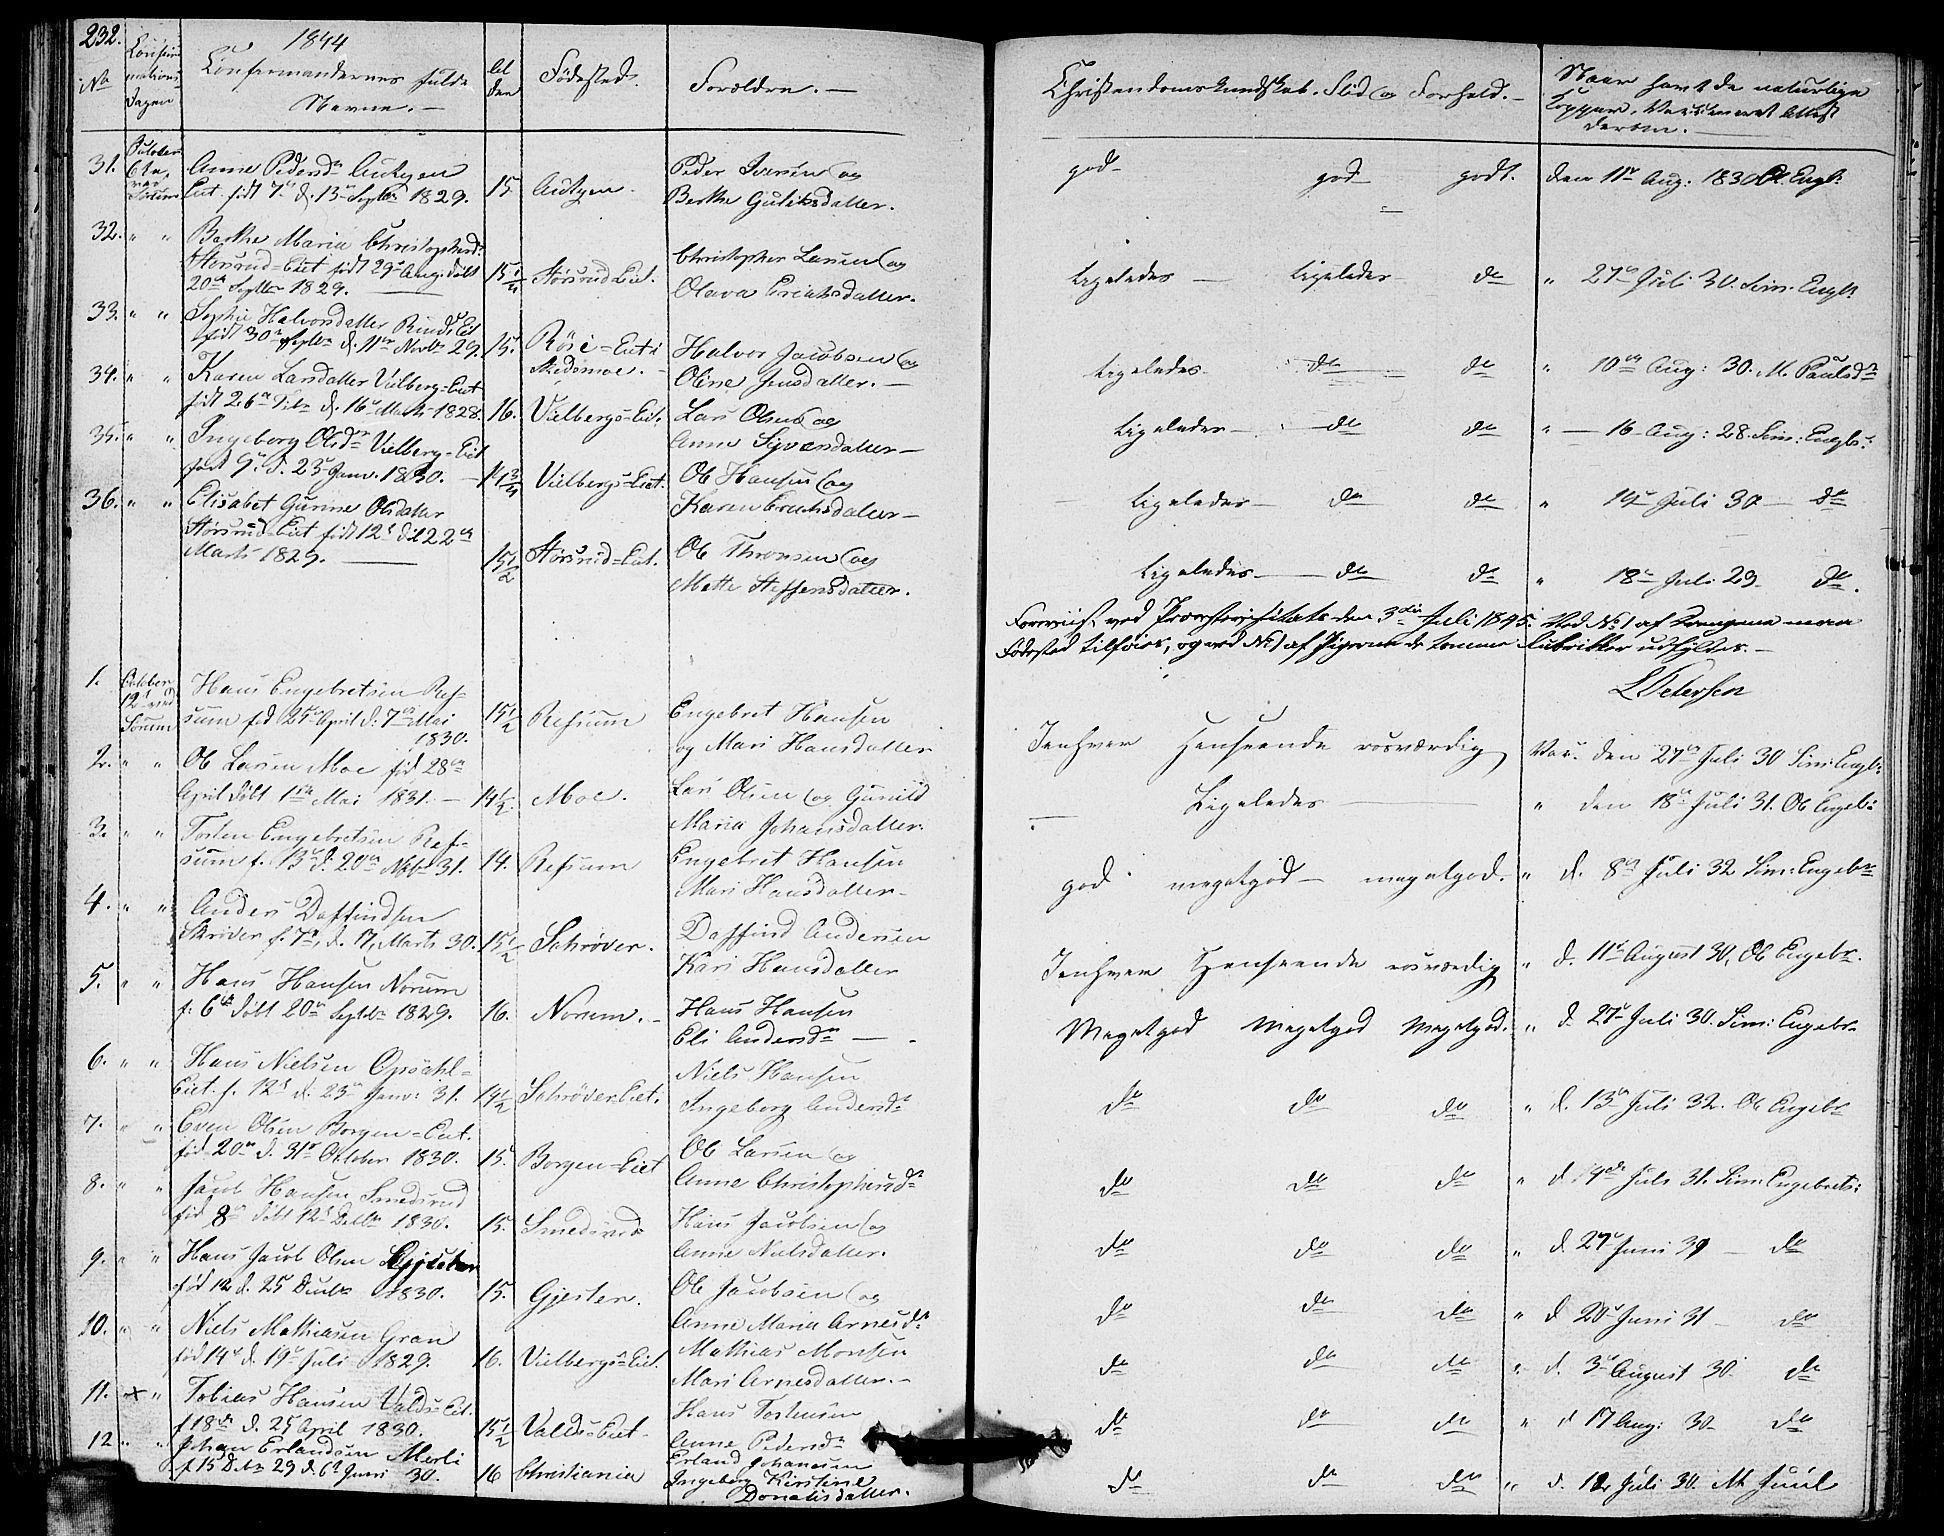 232.
1844
No
Confirmationsdagen
Confirmandernes fulde
Navne. —
Alderen
Fødested.
Forældre. —
Christendomskundskab. Flid og Forhold. —
Naar havt de naturlige
Kopper. Vaccineret Attest
derom. —
31. October 6te Sørum
Anne Pedersdr Autgen
Eiet. født 7de d. 13de Septbr 1829. 15 Autgen.
Peder Iversen og
Berthe Guliksdatter.
god god godt. den 11te Aug: 1830 O. Engb:
32. " "
Berthe Maria Christophersdr
Størsrud-Eiet født 29de Aug. døbt
20de Septbr 1829. 15¼ Størsrud-Eiet.
Christopher Larsen og
Olava Erichsdatter.
Ligeledes — Ligeledes do " 27de Juli 30. Sim: Engb:
33. " "
Sophie Halvorsdatter Rud-Eiet
født 30te Septbr d. 11te Novbr 29. 15. Eiet i
Skedsmoe. —
Halvor Jacobsen og
Oline Jensdatter. —
Ligeledes do do " 10de Aug: 30. M. Paulsdr
34. " "
Karen Larsdatter Vielberg-Eiet
født 26de d. 16de Marts 1828. 16. Vielbergs-Eiet.
Lars Olsen og
Anne Syversdatter —
Ligeledes — do do " — 16 Aug: 28. Sim: Engb:
35. " "
Ingeborg Olsdr Vielberg-Eiet
født 9de d. 23de Janv. 1830. — 14¾ Vielbergs-Eiet.
Ole Hansen og
Karen Erichsdatter —
Ligeledes — do do " 14de Juli 30 — do
36. " "
Elisabet Gurine Olsdatter
Størsrud-Eiet født 12te døbt 22de
Marts 1829. — 15½ Størsrud-Eiet.
Ole Thronsen og
Mette Steffensdatter.
Ligeledes — do do " 18de Juli 29 do.
Foreviist ved Provstevisitats den 3die Juli 1845. Ved No 1 af Drengene maa
Fødested tilføies, og ved No 1 af Pigerne de tomme Rubrikker udfyldes. —
L Petersen
1. October 12te ved Sørum
Hans Engebretsen Refsum
fød 25de April d: 7de Mai
1830. 15½ Refsum
Engebret Hansen
og Mari Hansdatter
I enhver Henseende rosværdig Vac. den 27de Juli 30 Sim: Engb:
2. " "
Ole Larsen Moe fød 28de
April døbt 1ste Mai 1831. — 14½. Moe.
Lars Olsen og Gunild
Maria Johansdatter.
Ligeledes — " den 18de Juli 31. Ole Engeb:
3. " "
Torsten Engebretsen Refsum
f. 13de d. 20de Novbr 31. 14. Refsum
Engebret Hansen
Mari Hansdatter —
god megetgod — megetgod. " d. 8de Juli 32 Sim: Engebr
4. " "
Anders Daffindsen
Skriver f. 7de, d. 17 Marts 30. 15½ Schrøver.
Daffind Andersen
Kari Hansdatter
I enhver Henseende rosværdig " d. 11te August 30, Ole Engebr.
5. " "
Hans Hansen Norum
f. 6te døbt 20de Septbr 1829. 16. Norum. —
Hans Hansen
Eli Andersdr — .
Megetgod Megetgod Megetgod. " d. 27de Juli 30. Sim: Engebr
6. " "
Hans Nielsen Opsahl-
Eiet. f. 12te d. 23de Janv: 31. 14½ Schrøver-Eiet.
Niels Hansen
Ingeborg Andersdr
do do do " d. 13de Juli 32. Ole Engebr
7. " "
Even Olsen Borgen-Eiet.
fød 20de d. 31te October 1830. 15. Borgen-Eiet
Ole Larsen og
Anne Christophersdr
do do do " d. 19de Juli 31. Sim: Engebrets:
8. " "
Jacob Hansen Smedsrud
fød 8de døbt 12te Decbr 1830. 15. Smedsrud
Hans Jacobsen og
Anne Nielsdatter.
do do do " d. 27de Juni 39 — do
9. " "
Hans Jacob Olsen Gjester
fød 12 d. 25 Decbr 1830. 15. Gjester.
Ole Jacobsen og
Anne Maria Arnesdr
do do do " d. 20de Juni 31 — do
10. " "
Niels Mathiasen Gran
fød 14de d. 19de Juli 1829. 16. Vielbergs-Eiet.
Mathias Monsen
Mari Arnesdatter. —
do do do " d. 3de August 30 do
11. x "
Tobias Hansen Valds-Eiet.
f. 18de d. 25 April 1830. 15½ Valds-Eiet
Hans Torstensen
Anne Pedersdr
do do do " d 17 Aug: 30 do
12 " "
Johan Erlandsen Merli
f. 15 Decbr 29 d. 6te Juni 30. 16 Christiania
Erland Johansen
Ingeborg Kirstine
Donatisdatter.
do do do " d. 12 Juli 30. M Juul